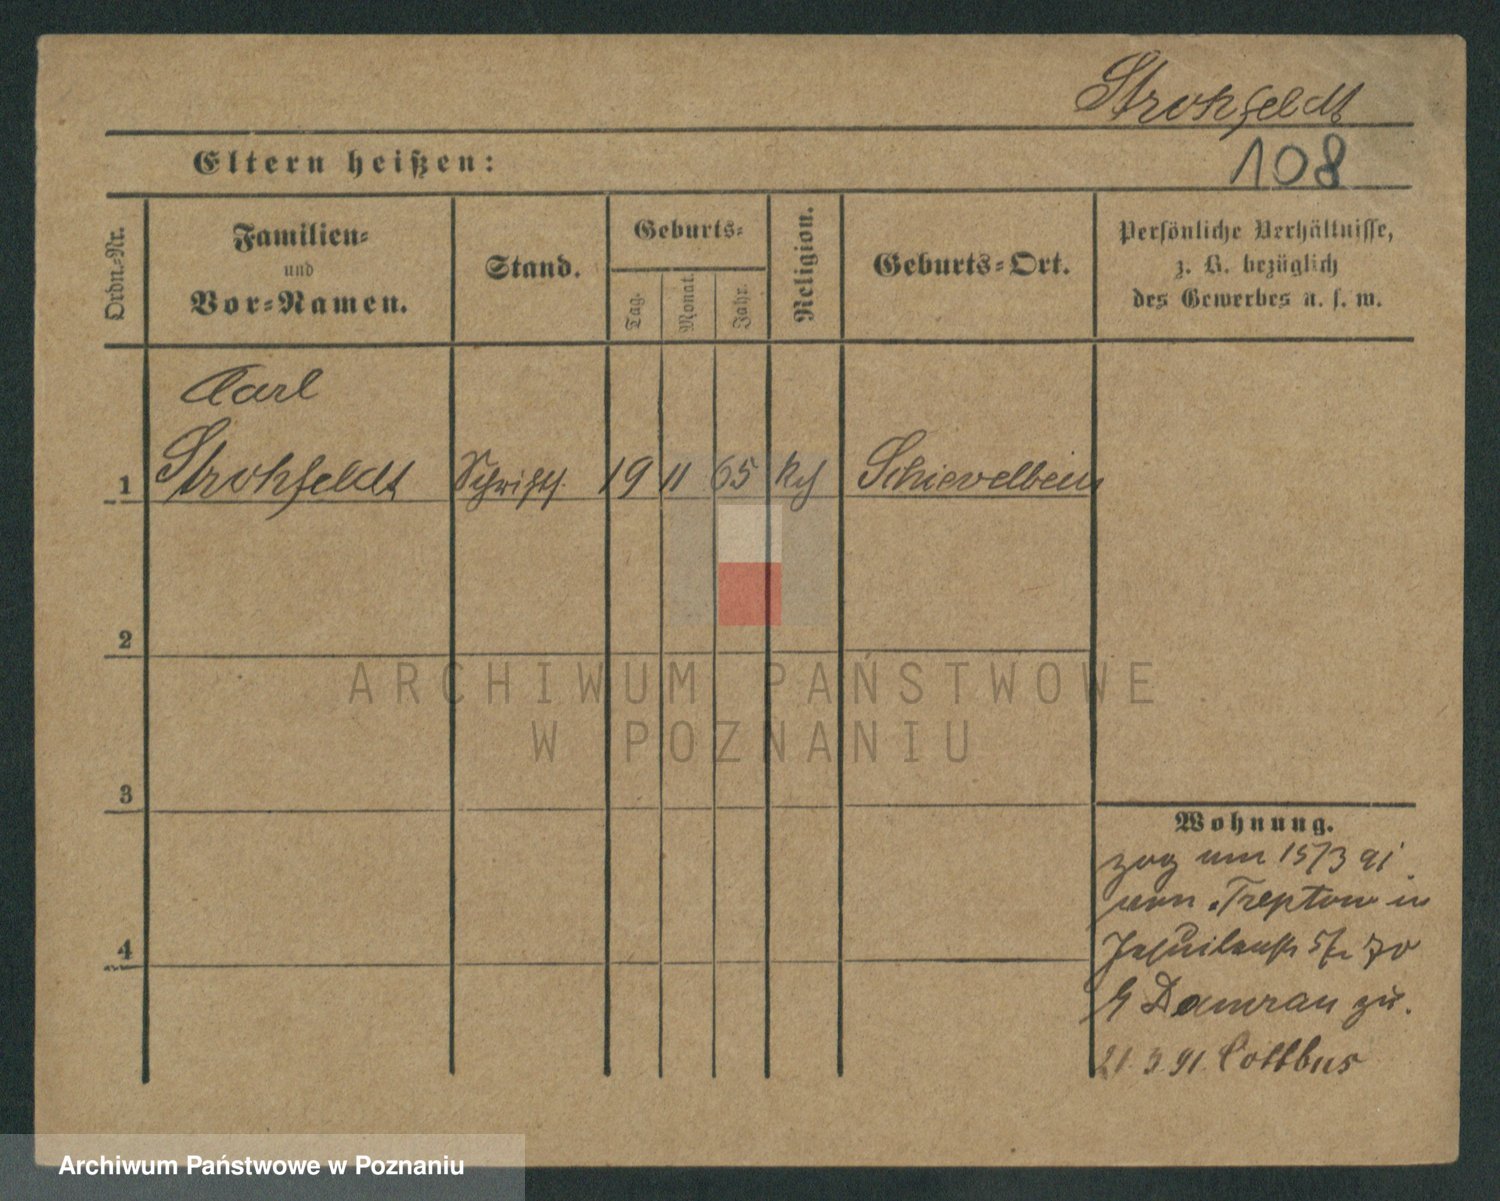 Strohfeldt
Eltern heißen:
108
Ordn.-Nr.
Familien-
und
Vor-Namen.
Stand.
Geburts-
Tag.
Monat.
Jahr.
Religion.
Geburts-Ort.
Persönliche Verhältnisse,
z. B. bezüglich
des Gewerbes u. s. w.
Carl
1 Strohfeldt Schrifts. 19 11 65 Schievelbein
2
3
4
Wohnung.
zog um 15/3 91
von Treptow in
70
Damrau zu.
21.3.91. Cottbus
ARCHIWUM PAŃSTWOWE
W POZNANIU
Archiwum Państwowe w Poznaniu